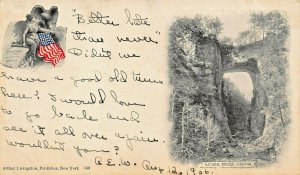 "Better late
than never"
Didn't we
have a good old time
here? I would love
to go back and
see it all over again.
Wouldn't you?
A.E.W. Aug 12, 1906.
Arthur Livingston, Publisher, New York
NATURAL BRIDGE, VIRGINIA